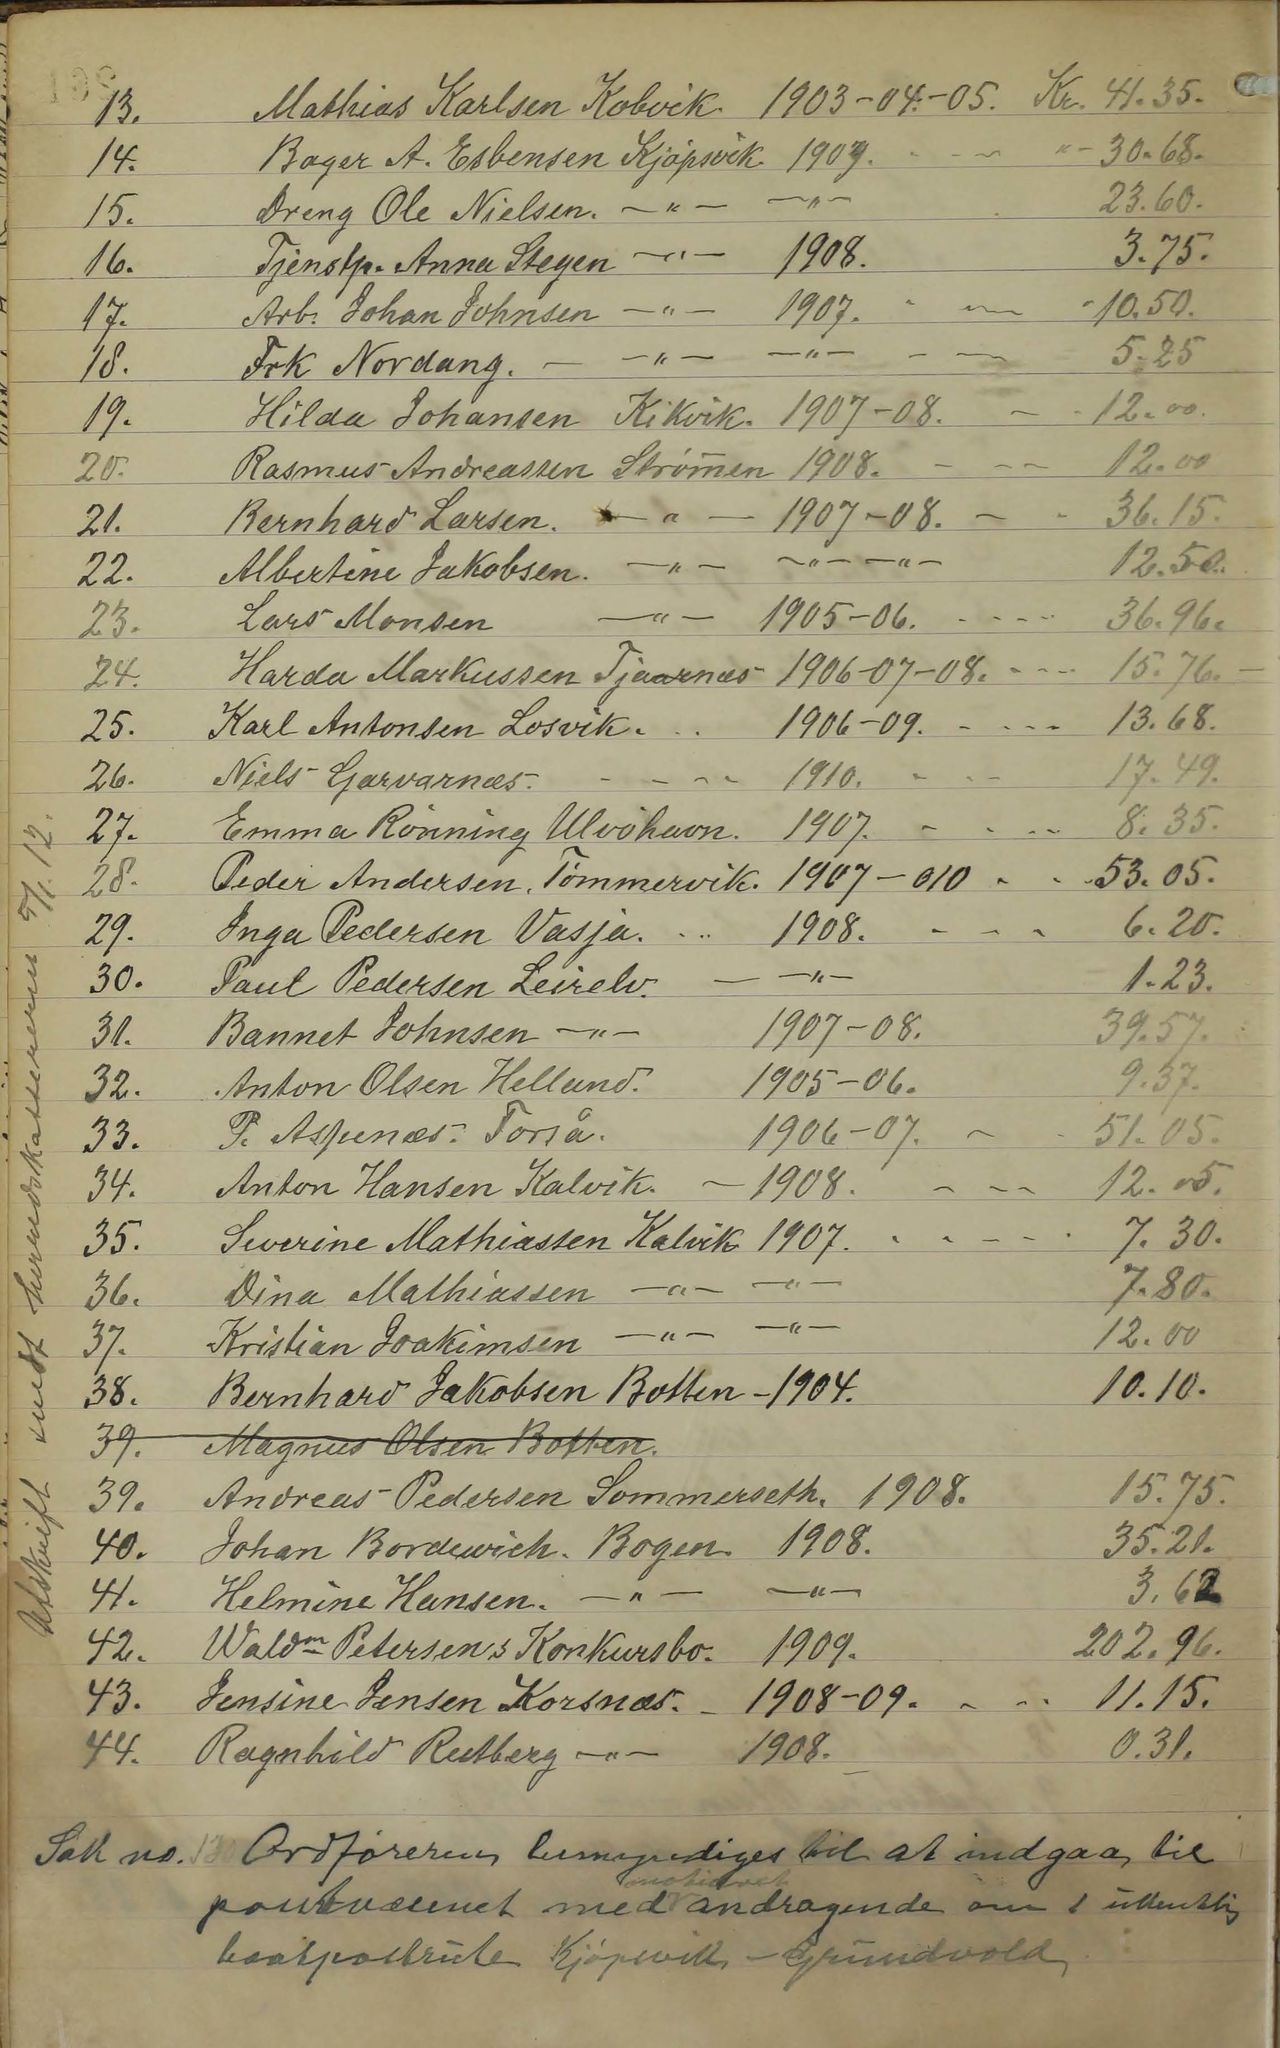 13. Mathias Karlsen Kobvik. 1903-04-05. Kr. 41.35.
14. Bager A. Esbensen Kjøpsvik. 1909. - - - "- 30.68.
15. Dreng Ole Nielsen. -"- -"- 23.60.
16. Tjenstp. Anna Stegen -"- 1908. 3.75.
17. Arb. Johan Johnsen -"- 1907. - - - 10.50.
18. Frk Nordang. - -"- -"- - - 5.25
19. Hilda Johansen Kikvik. 1907-08. - - 12.00.
20. Rasmus Andreassen Strømen 1908. - - - 12.00
21. Bernhard Larsen. -"- 1907-08. - - 36.15.
22. Albertine Jakobsen. -"- -"- -"- 12.50.
23. Lars Monsen -"- 1905-06. - - - - 36.96.
24. Harda Markussen Tjaarnæs 1906-07-08. - - - 15.76. -
25. Karl Antonsen Losvik. . . 1906-09. - - - - 13.68.
26. Niels Garvarnæs. - - - - 1910. - - - 17.49.
27. Emma Rønning Ulvøhavn. 1907. - - - 8.35.
28. Peder Andersen, Tømmervik. 1907-010 - - 53.05.
29. Inga Pedersen Vasja. . . 1908. - - - 6.20.
30. Paul Pedersen Leirelv. - -"- 1.23.
31. Bannet Johnsen -"- 1907-08. 39.57.
32. Anton Olsen Helland. 1905-06. 9.37.
33. P. Aspenæs. Forså. 1906-07. - - 51.05.
34. Anton Hansen Kalvik. - 1908. - - - 12.05.
35. Severine Mathiassen Kalvik 1907. - - - - - 7.30.
36. Dina Mathiassen -"- -"- 7.80.
37. Kristian Joakimsen -"- -"- 12.00
38. Bernhard Jakobsen Botten - 1904. 10.10.
39. Magnus Olsen Botten.
39. Andreas Pedersen Sommerseth. 1908. 15.75.
40. Johan Bordewich. Bogen. 1908. 35.21.
41. Helmine Hansen. -"- -"- 3.62
42. Waldm Petersens Konkursbo. 1909. 202.96.
43. Jensine Jensen Korsnæs. - 1908-09. - - - 11.15.
44. Ragnhild Rutberg -"- 1908. 0.31.
Sak no. Ordføreren bemyndiges til at indgaa til
motiveret
postvæsenet med andragende om 1 ukentlig
baatpostrute Kjøpsvik - Grundvold.
Utskrift sendt herredskassereren 5/1.12.